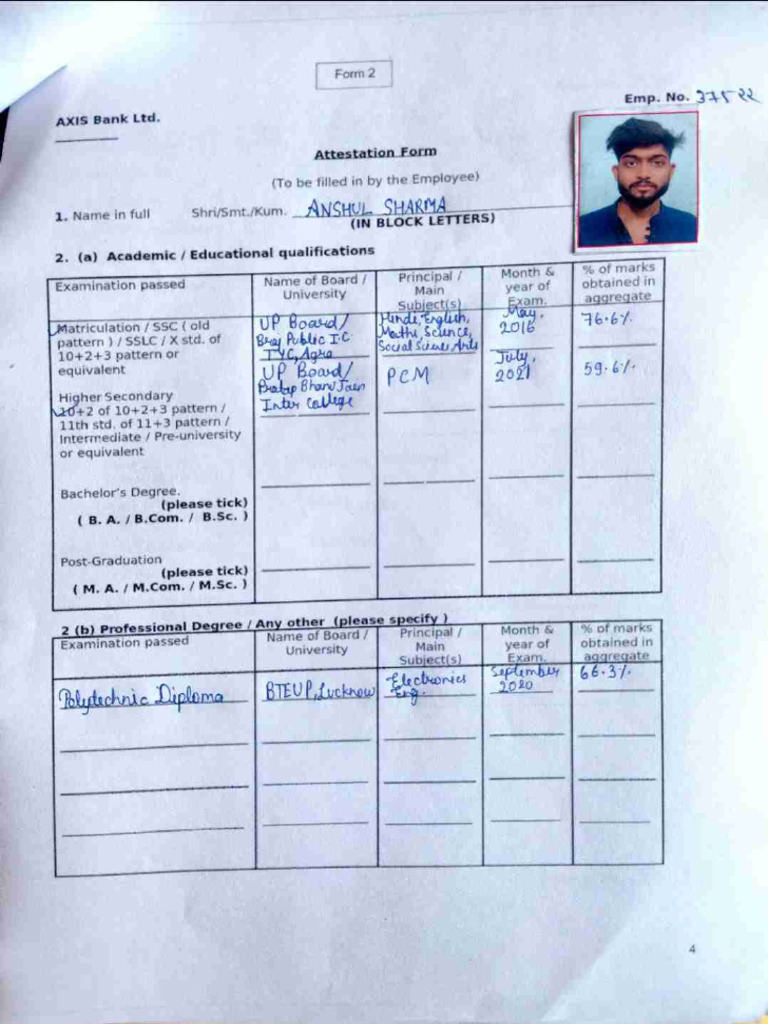 Form 2
Emp. No. 37522
AXIS Bank Ltd.
Attestation Form
(To be filled in by the Employee)
1. Name in full Shri/Smt./Kum. ANSHUL SHARMA
(IN BLOCK LETTERS)
2. (a) Academic / Educational qualifications
Examination passed
Name of Board /
University
Principal /
Main
Subject(s)
Month &
year of
Exam.
% of marks
obtained in
aggregate
Matriculation / SSC ( old
pattern ) / SSLC / X std. of
10+2+3 pattern or
equivalent
UP Board/
Braj Public I.C.
TYC, Agra
Hindi, English,
Maths, Science,
Social Science, Arts
May,
2016
76.6%
Higher Secondary
10+2 of 10+2+3 pattern /
11th std. of 11+3 pattern /
Intermediate / Pre-university
or equivalent
UP Board/
Pratap Bhanu Jain
Inter College
PCM
July,
2021
59.6%
Bachelor's Degree.
(please tick)
( B. A. / B.Com. / B.Sc. )
Post-Graduation
(please tick)
( M. A. / M.Com. / M.Sc. )
2 (b) Professional Degree / Any other (please specify )
Examination passed
Name of Board /
University
Principal /
Main
Subject(s)
Month &
year of
Exam.
% of marks
obtained in
aggregate
Polytechnic Diploma
BTEUP, Lucknow
Electronics
Eng.
September
2020
66.3%
4